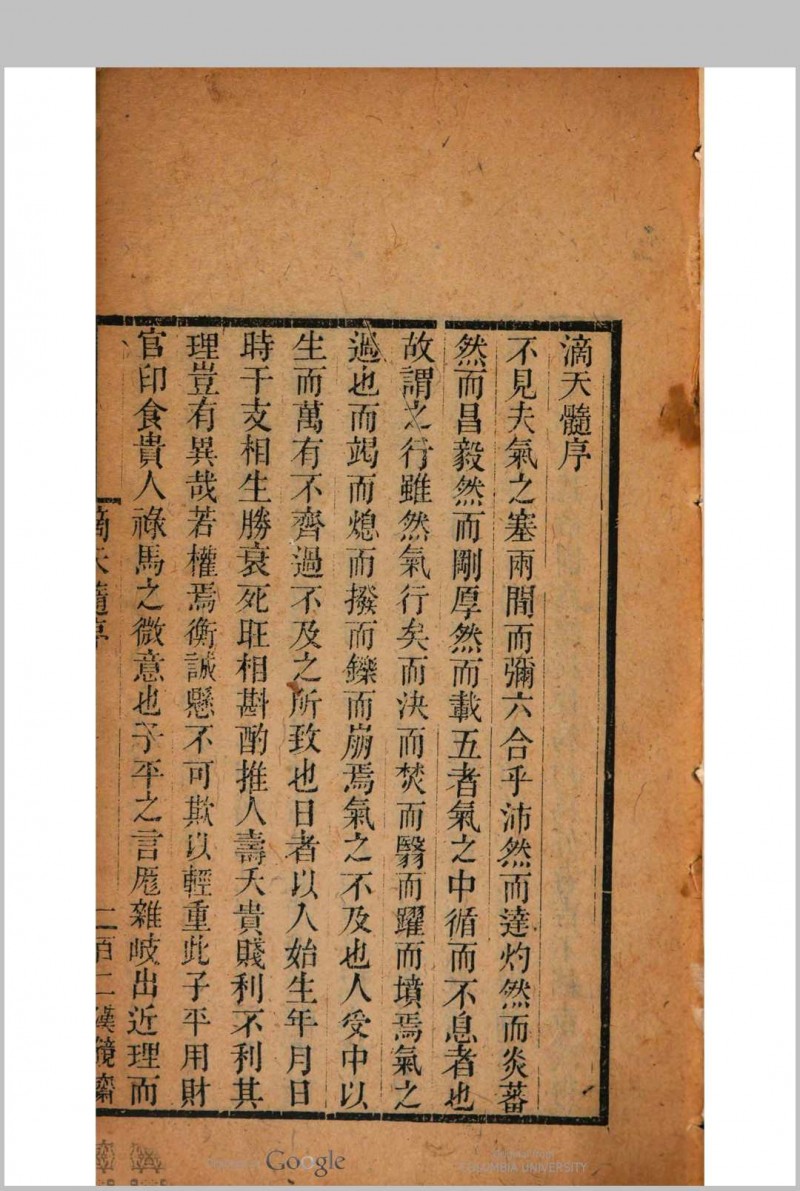 滴天髓序
不見夫氣之塞兩間而彌六合乎沛然而達灼然而炎蕃
然而昌毅然而剛厚然而載五者氣之中循而不息者也
故謂之行雖然氣行矣而決而焚而翳而躍而墳焉氣之
過也而竭而熄而撥而鑠而崩焉氣之不及也人受中以
生而萬有不齊過不及之所致也日者以人始生年月日
時干支相生勝衰死旺相斟酌推人壽夭貴賤利不利其
理豈有異哉若權焉衡誠懸不可欺以輕重此子平用財
官印食貴人祿馬之微意也子平之言厖雜岐出近理而
滴天髓序
二百二漢鏡齋
Google
COLUMBIA UNIVERSITY